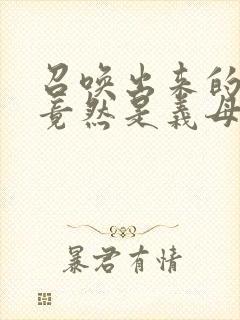 召唤出来的
竟然是义母
暴君有情